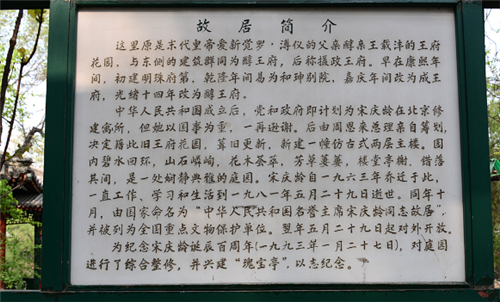 故居简介
这里原是末代皇帝爱新觉罗·溥仪的父亲醇亲王载沣的王府
花园，与东侧的建筑群同为醇王府，后称摄政王府。早在康熙年
间，初建明珠府第，乾隆年间易为和珅别院，嘉庆年间改为成王
府，光绪十四年改为醇王府。
中华人民共和国成立后，党和政府即计划为宋庆龄在北京修
建寓所，但她以国事为重，一再逊谢。后由周恩来总理亲自筹划，
决定籍此旧王府花园，葺旧更新，新建一幢仿古式两层主楼。园
内碧水回环，山石嶙峋，花木荟萃，芳草萋萋，楼堂亭榭，错落
其间，是一处娴静典雅的庭园。宋庆龄自一九六三年乔迁于此，
一直工作、学习和生活到一九八一年五月二十九日逝世。同年十
月，由国家命名为“中华人民共和国名誉主席宋庆龄同志故居”，
并被列为全国重点文物保护单位。翌年五月二十九日起对外开放。
为纪念宋庆龄诞辰百周年(一九九三年一月二十七日)，对庭园
进行了综合整修，并兴建“瑰宝亭”，以志纪念。